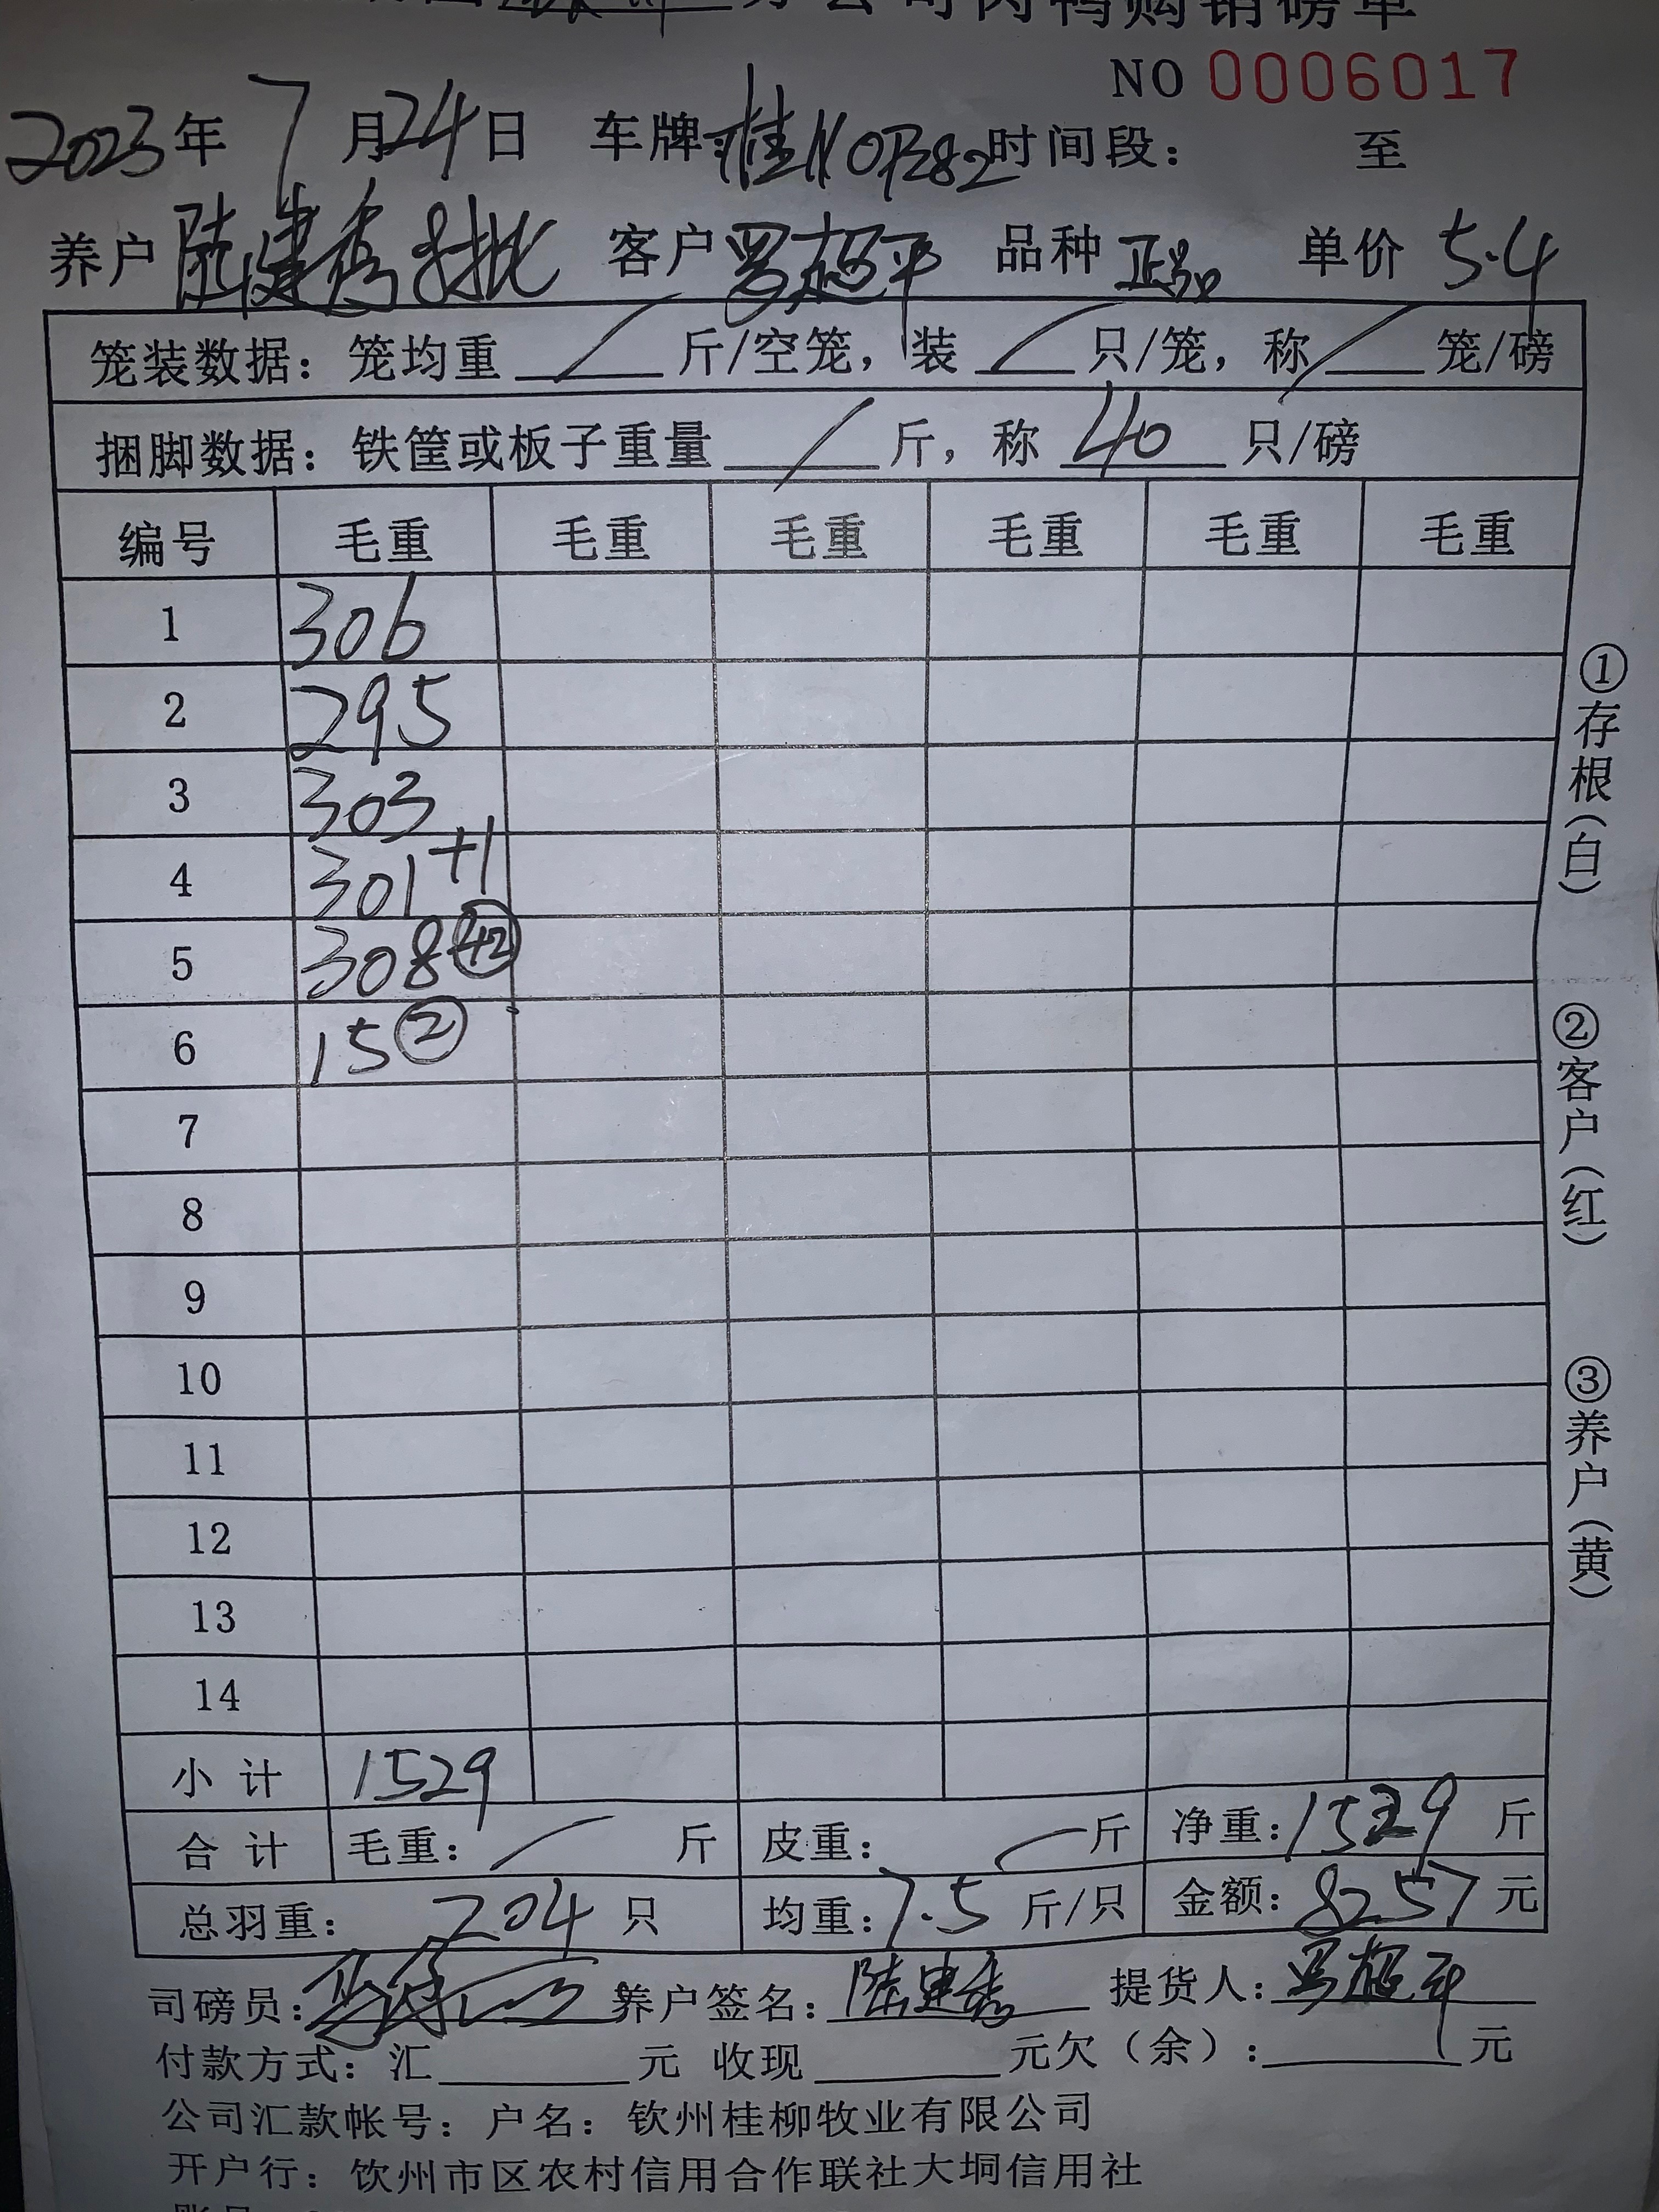 分公司肉鸭购销磅单
NO 0006017
2023年 7 月24日 车牌:桂N 时间段: 至
养户 陆建秀 批 客户 罗超平 品种 正品 单价 5.4
笼装数据: 笼均重 / 斤/空笼, 装 / 只/笼, 称 / 笼/磅
捆脚数据: 铁筐或板子重量 / 斤, 称 40 只/磅
编号 毛重 毛重 毛重 毛重 毛重 毛重
1 306
2 295
3 303
4 301 +1
5 308 42
6 15 ②
7
8
9
10
11
12
13
14
小计 1529
合计 毛重: / 斤 皮重: / 斤 净重: 1529 斤
总羽重: 204 只 均重: 7.5 斤/只 金额: 8257 元
①存根(白)
②客户(红)
③养户(黄)
司磅员: 养户签名: 陆建秀 提货人: 罗超平
付款方式: 汇 元 收现 元欠(余): 元
公司汇款帐号: 户名: 钦州桂柳牧业有限公司
开户行: 钦州市区农村信用合作联社大垌信用社